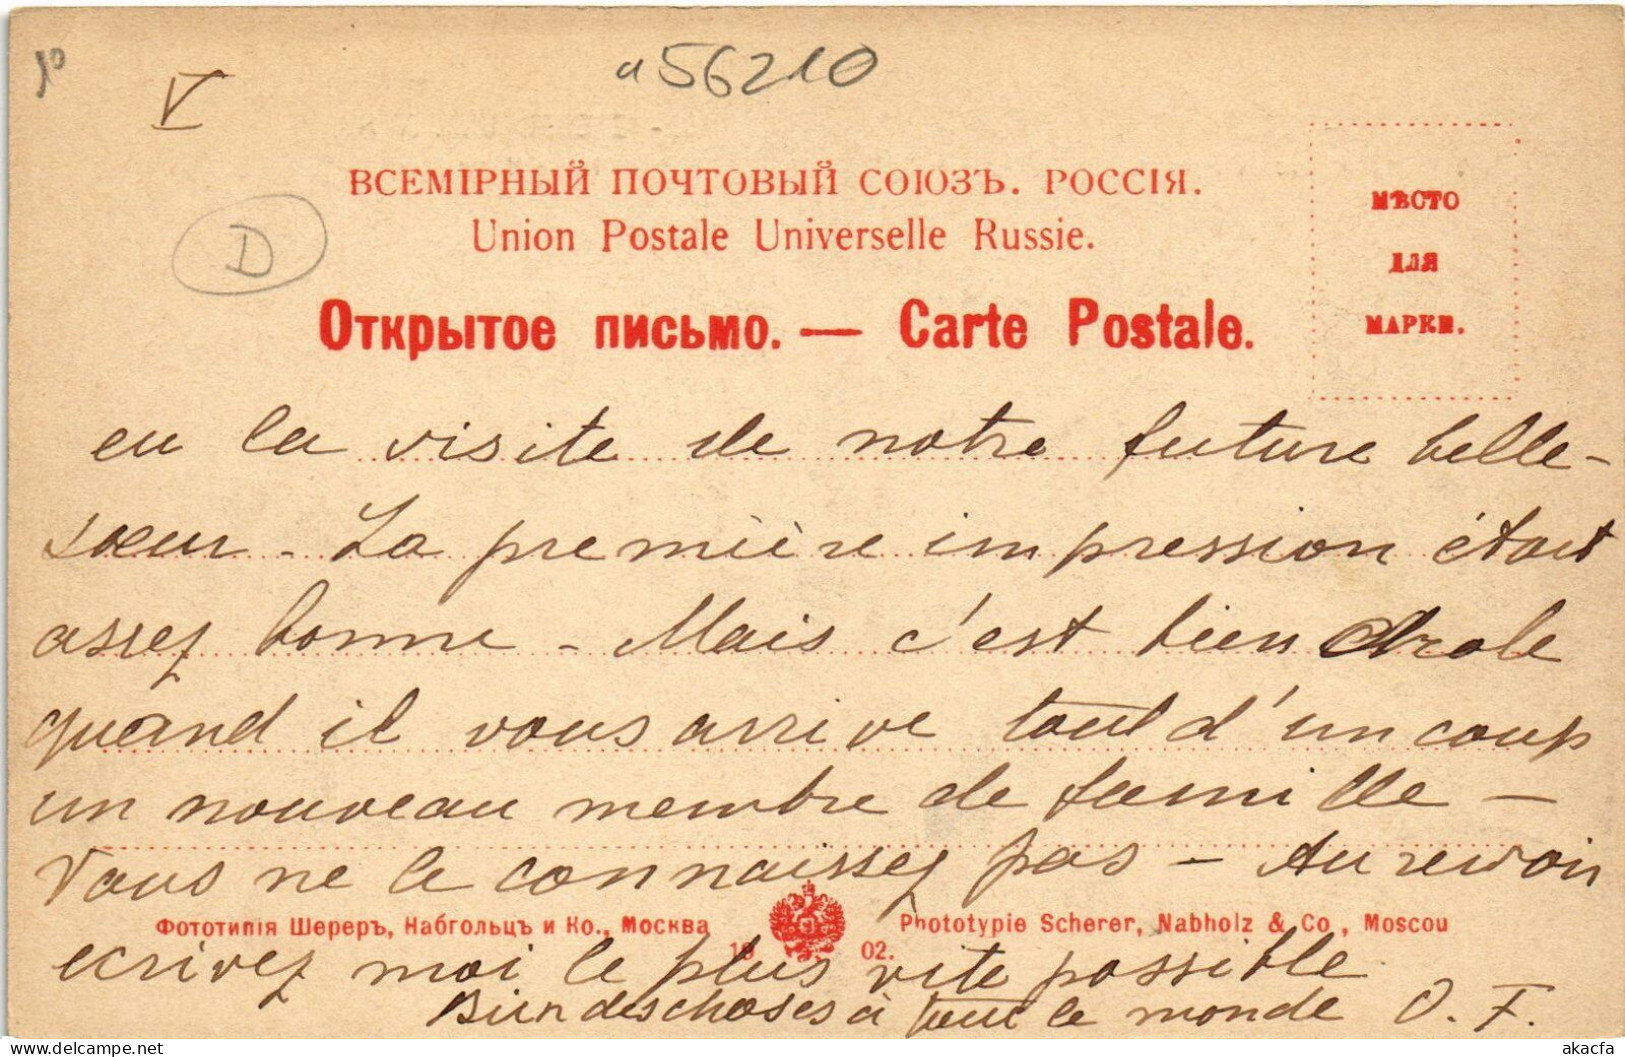 a56210
V
D
ВСЕМІРНЫЙ ПОЧТОВЫЙ СОЮЗЪ. РОССІЯ.
Union Postale Universelle Russie.
Открытое письмо. — Carte Postale.
МѢСТО
ДЛЯ
МАРКИ.
eu la visite de notre future belle-
soeur - La première impression était
assez bonne - Mais c'est bien drole
quand il vous arrive tout d'un coup
un nouveau membre de famille -
Vous ne le connaissez pas - Au revoir
Фототипія Шереръ, Набгольцъ и Ко., Москва
1902.
Phototypie Scherer, Nabholz & Co, Moscou
ecrivez moi le plus vite possible
Bien des choses à tout le monde O. F.
akacfa